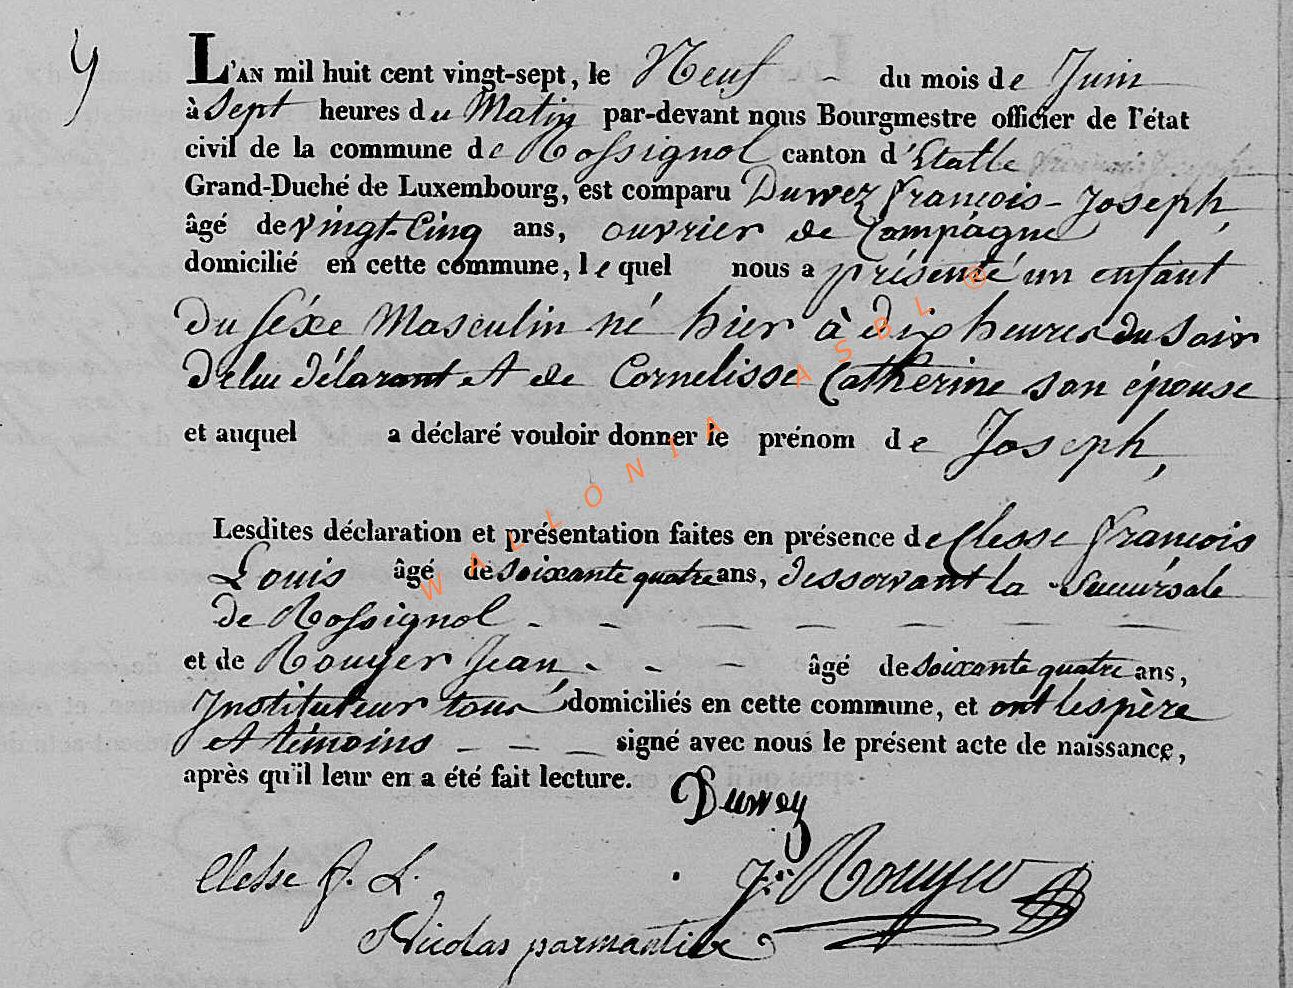 9
L'AN mil huit cent vingt-sept, le Neuf - du mois de Juin
à Sept heures du Matin par-devant nous Bourgmestre officier de l'état
civil de la commune de Rossignol canton d'Etalle
Grand-Duché de Luxembourg, est comparu Duwez François-Joseph,
âgé de vingt-Cinq ans, ouvrier de Campagne
domicilié en cette commune, lequel nous a présenté un enfant
du séxe Masculin né hier à dix heures du Soir
de lui délarant et de Cornelisse Catherine son épouse
et auquel a déclaré vouloir donner le prénom de Joseph,
Lesdites déclaration et présentation faites en présence de Clesse François
Louis âgé de soixante quatre ans, desservant la Succursale
de Rossignol - - - - - - - -
et de Rouyer Jean, - - - âgé de soixante quatre ans,
Instituteur tous domiciliés en cette commune, et ont les père
et témoins - - - signé avec nous le présent acte de naissance,
après qu'il leur en a été fait lecture.
Duwez
Clesse F. L. J. Rouyer
Nicolas parmantier
WALLONIA ASBL ©